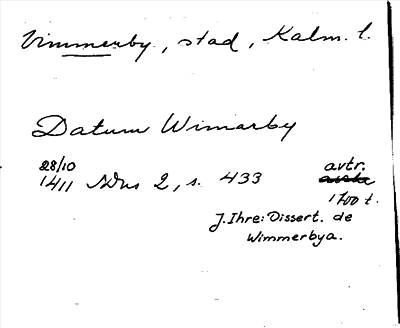 Vimmerby, stad, Kalm. l.
Datum Wimarby
28/10
1411 SDns 2, s. 433
avtr.
1700 t.
J. Ihre: Dissert. de
Wimmerbya.